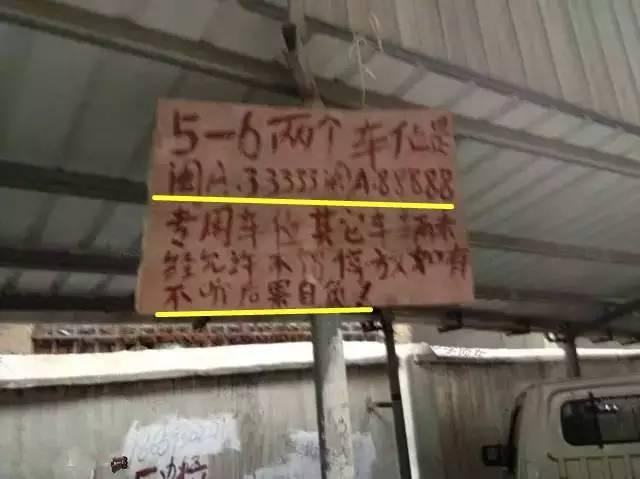 5-6两个车位是
闽A.33333闽A.88888
专用车位其它车辆未
经允许不许停放如有
不听后果自负!